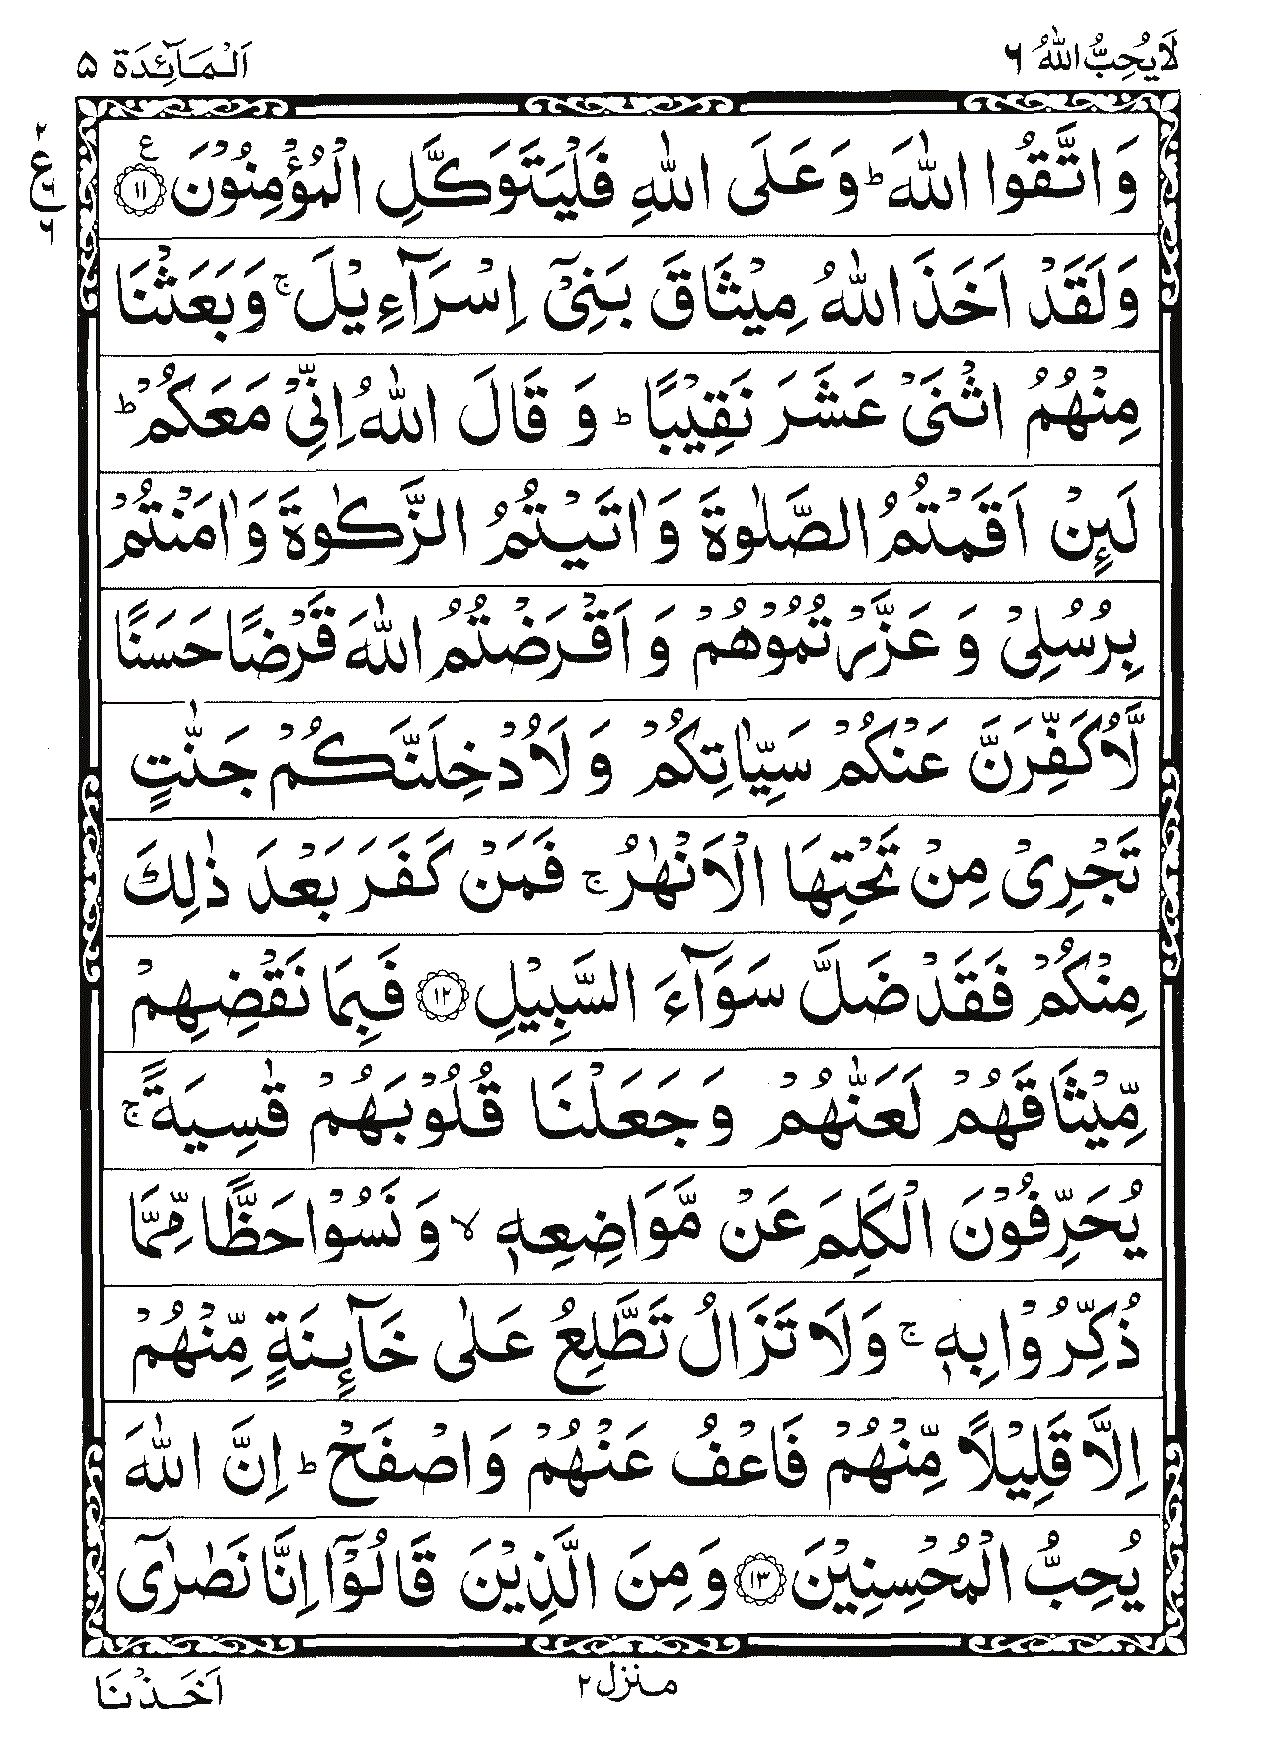 لَا يُحِبُّ اللّٰهُ ٦
اَلْمَآئِدَة ٥
وَ اتَّقُوا اللّٰهَ ؕ وَ عَلَى اللّٰهِ فَلْيَتَوَكَّلِ الْمُؤْمِنُوْنَ ۧ ﴿١١﴾
٢ ع ٦ ٦
وَلَقَدْ اَخَذَ اللّٰهُ مِيْثَاقَ بَنِىْۤ اِسْرَآءِيْلَ ۚ وَبَعَثْنَا
مِنْهُمُ اثْنَىْ عَشَرَ نَقِيْبًا ؕ وَ قَالَ اللّٰهُ اِنِّىْ مَعَكُمْ ؕ
لَئِنْ اَقَمْتُمُ الصَّلٰوةَ وَ اٰتَيْتُمُ الزَّكٰوةَ وَ اٰمَنْتُمْ
بِرُسُلِىْ وَ عَزَّرْتُمُوْهُمْ وَ اَقْرَضْتُمُ اللّٰهَ قَرْضًا حَسَنًا
لَّاُكَفِّرَنَّ عَنْكُمْ سَيِّاٰتِكُمْ وَ لَاُدْخِلَنَّكُمْ جَنّٰتٍ
تَجْرِىْ مِنْ تَحْتِهَا الْاَنْهٰرُ ۚ فَمَنْ كَفَرَ بَعْدَ ذٰلِكَ
مِنْكُمْ فَقَدْ ضَلَّ سَوَآءَ السَّبِيْلِ ﴿١٢﴾ فَبِمَا نَقْضِهِمْ
مِّيْثَاقَهُمْ لَعَنّٰهُمْ وَجَعَلْنَا قُلُوْبَهُمْ قٰسِيَةً ۚ
يُحَرِّفُوْنَ الْكَلِمَ عَنْ مَّوَاضِعِهٖ ۙ وَ نَسُوْا حَظًّا مِّمَّا
ذُكِّرُوْا بِهٖ ۚ وَلَا تَزَالُ تَطَّلِعُ عَلٰى خَآئِنَةٍ مِّنْهُمْ
اِلَّا قَلِيْلًا مِّنْهُمْ فَاعْفُ عَنْهُمْ وَاصْفَحْ ؕ اِنَّ اللّٰهَ
يُحِبُّ الْمُحْسِنِيْنَ ﴿١٣﴾ وَ مِنَ الَّذِيْنَ قَالُوْۤا اِنَّا نَصٰرٰٓى
منزل ٢
اَخَذْنَا